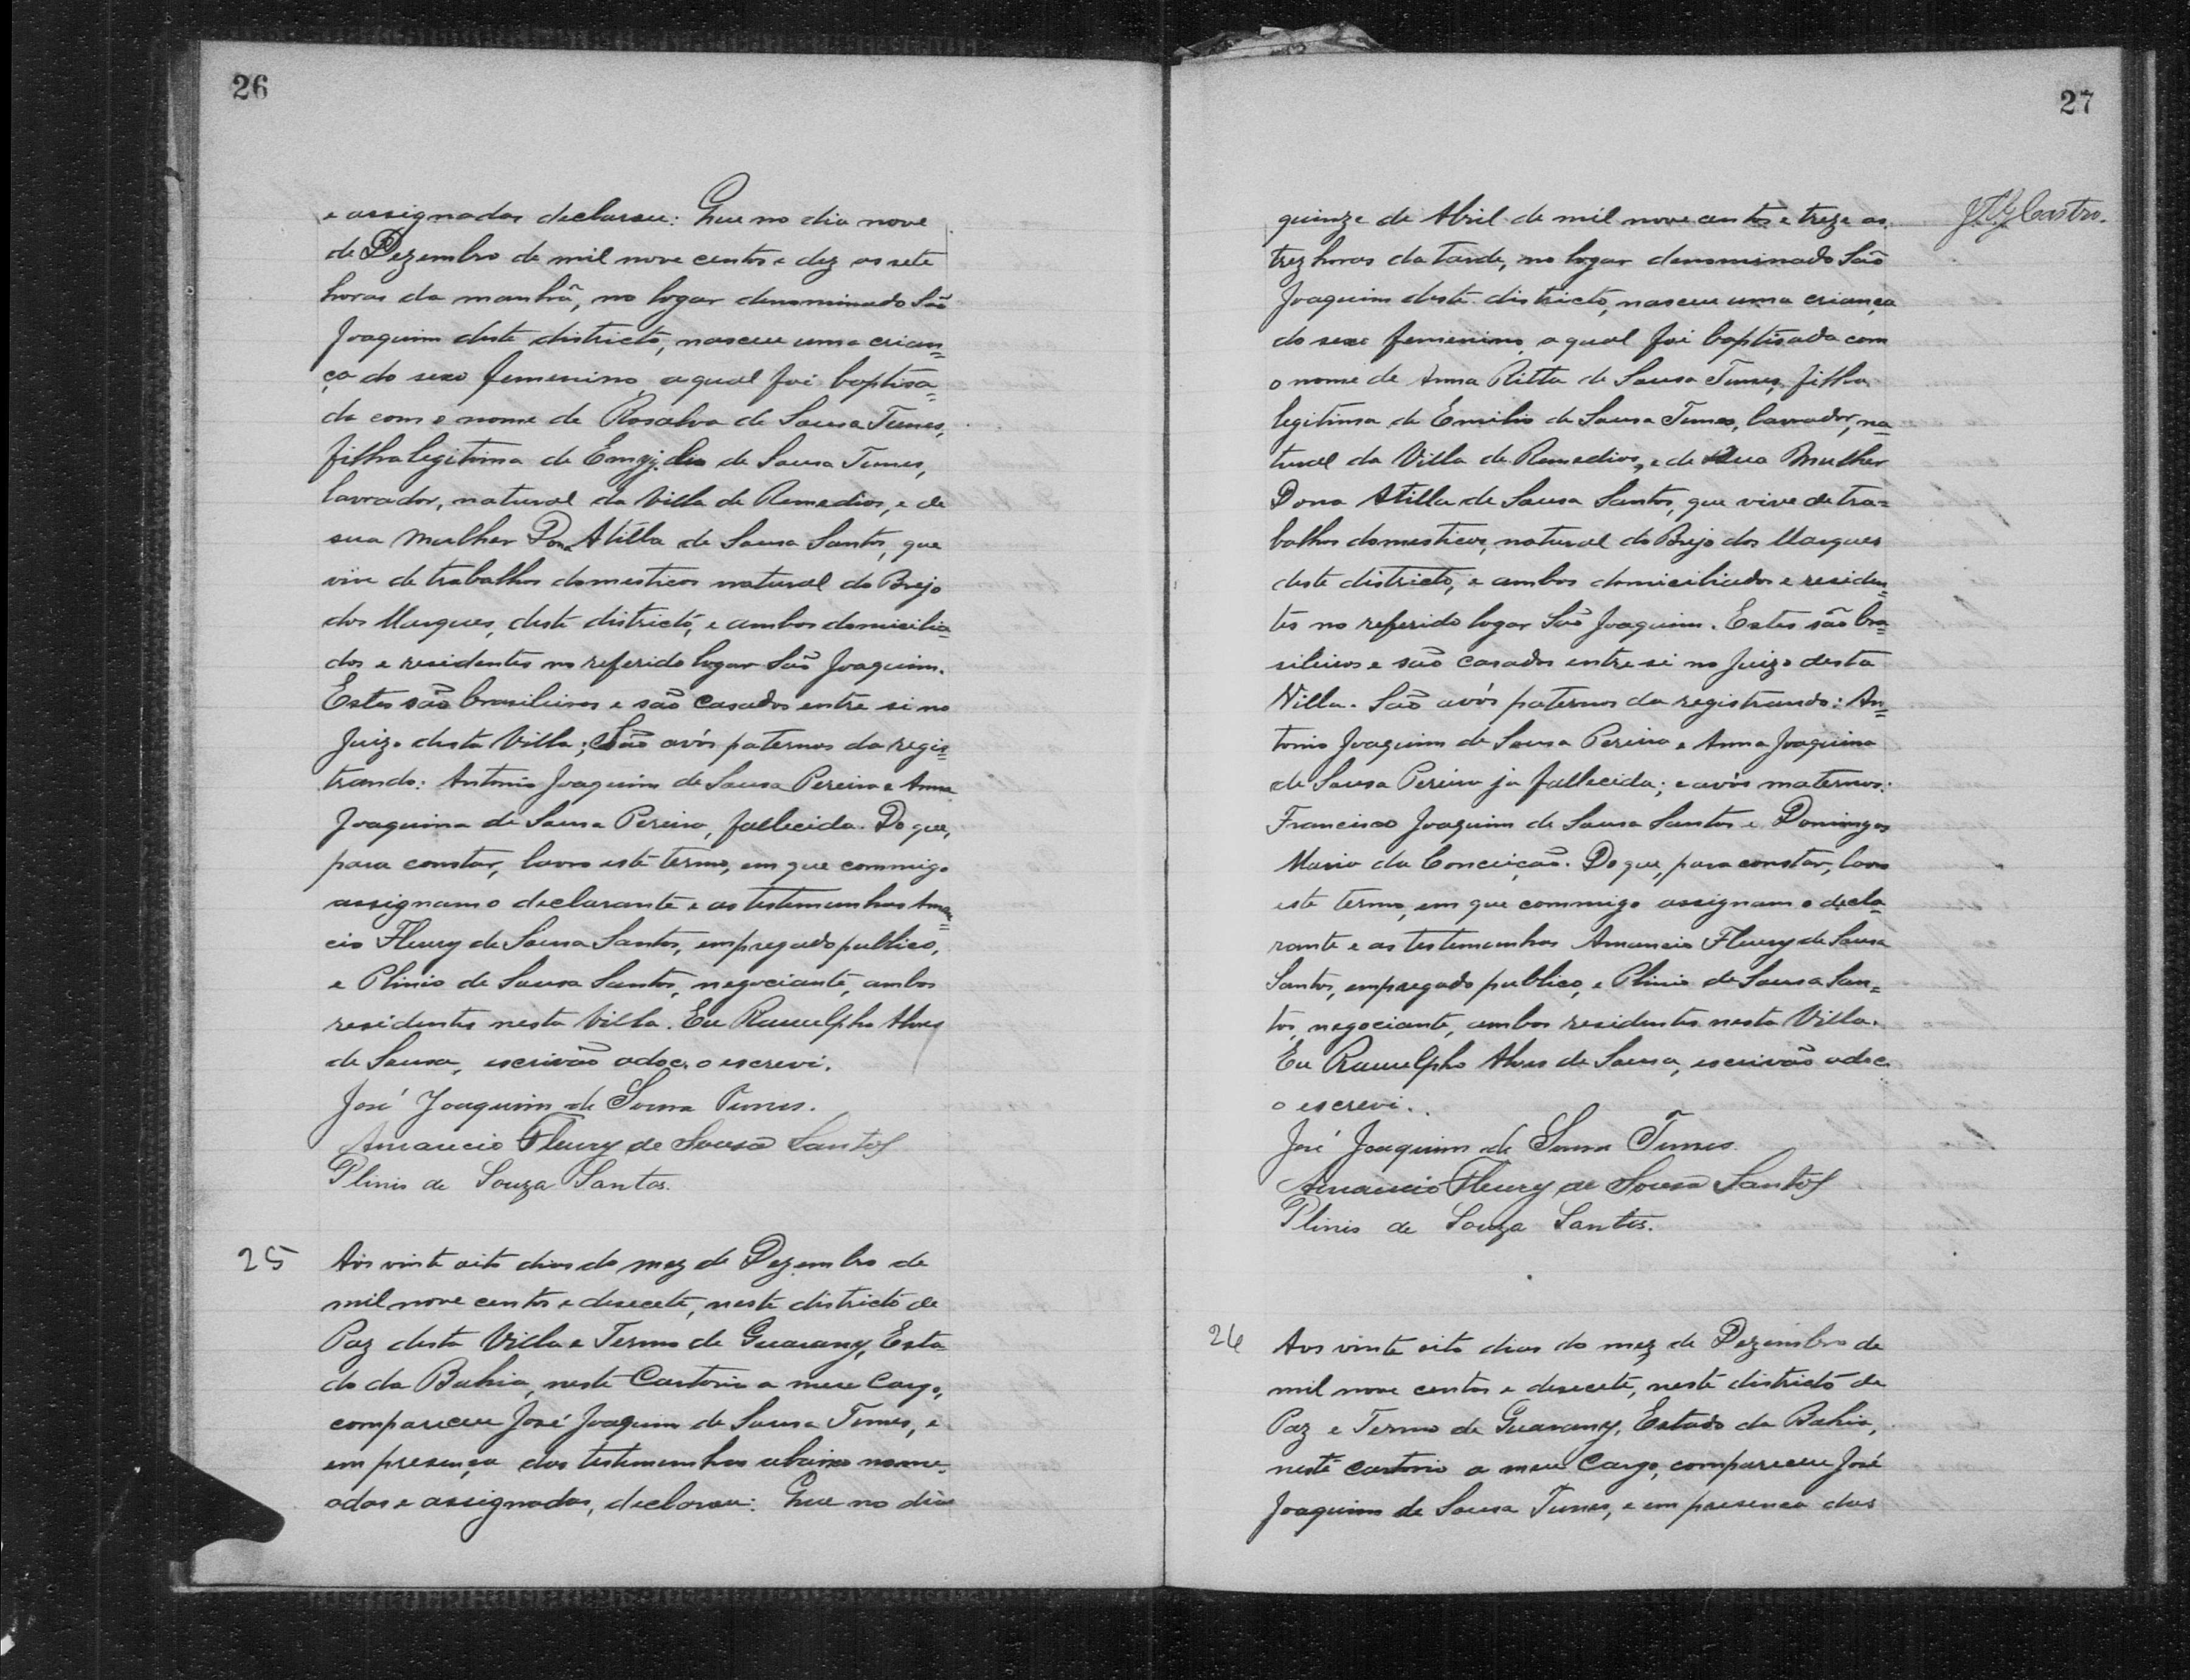 26
e assignadas declarou: Que no dia nove
de Dezembro de mil nove centos e dez as sete
horas da manhã, no logar denominado São
Joaquim deste districto, nasceu uma crian=
ça do sexo femenino, a qual foi baptisa=
da com o nome de Rosalva de Sousa Tunes,
filha legitima de Emygdio de Sousa Tunes,
lavrador, natural da Villa de Remedios, e de
sua Mulher Dona Atilla de Sousa Santos, que
vive de trabalhos domesticos natural do Brejo
dos Marques, deste districto, e ambos domicilia=
dos e residentes no referido logar São Joaquim.
Estes são brasileiros e são Casados entre si no
Juizo desta Villa; São avós paternos da regis=
trando: Antonio Joaquim de Sousa Pereira e Anna
Joaquina de Sousa Pereira, fallecida. Do que,
para constar, lavro este termo, em que commigo
assignam o declarante e as testemunhas Aman=
cio Fleury de Sousa Santos, empregado publico,
e Plinio de Sousa Santos, negociante, ambos
residentes nesta Villa. Eu Ranulpho Alves
de Sousa, escrivão adoc. o escrevi.
José Joaquim de Sousa Tunes.
Amancio Fleury de Sousa Santos
Plinio de Souza Santos.
25
Aos vinte oito dias do mez de Dezembro de
mil nove centos e desecete, neste districto de
Paz desta Villa e Termo de Guarany, Esta
do da Bahia, neste Cartorio a meu Cargo,
compareceu José Joaquim de Sousa Tunes, e
em presença das testemunhas abaixo nome=
adas e assignadas, declarou: Que no dia
27
quinze de Abril de mil nove centos e treze as
trez horas da tarde, no logar denominado São
Joaquim deste districto, nasceu uma criança
do sexo femenino, a qual foi baptisada com
o nome de Anna Ritta de Sousa Tunes, filha
legitima de Emilio de Sousa Tunes, lavrador, na=
tural da Villa de Remedios, e de sua Mulher
Dona Atilla de Sousa Santos, que vive de tra=
balhos domesticos, natural do Brejo dos Marques
deste districto, e ambos domiciliados e residen=
tes no referido logar São Joaquim. Estes são bra=
sileiros e são casados entre si no Juizo desta
Villa. São avós paternos da registrando: An=
tonio Joaquim de Sousa Pereira e Anna Joaquina
de Sousa Pereira ja fallecida; e avós maternos:
Francisco Joaquim de Sousa Santos e Domingas
Maria da Conceição. Do que, para constar, lavro
este termo, em que commigo assignam o decla=
rante e as testemunhas Amancio Fleury de Sousa
Santos, empregado publico, e Plinio de Sousa San=
tos, negociante, ambos residentes nesta Villa.
Eu Ranulpho Alves de Sousa, escrivão adoc.
o escrevi.
José Joaquim de Sousa Tunes
Amancio Fleury de Sousa Santos
Plinio de Souza Santos.
26
Aos vinte oito dias do mez de Dezembro de
mil nove centos e desecete, neste districto de
Paz e Termo de Guarany, Estado da Bahia,
neste cartorio a meu Cargo, compareceu José
Joaquim de Sousa Tunes, e em presenca das
Castro.